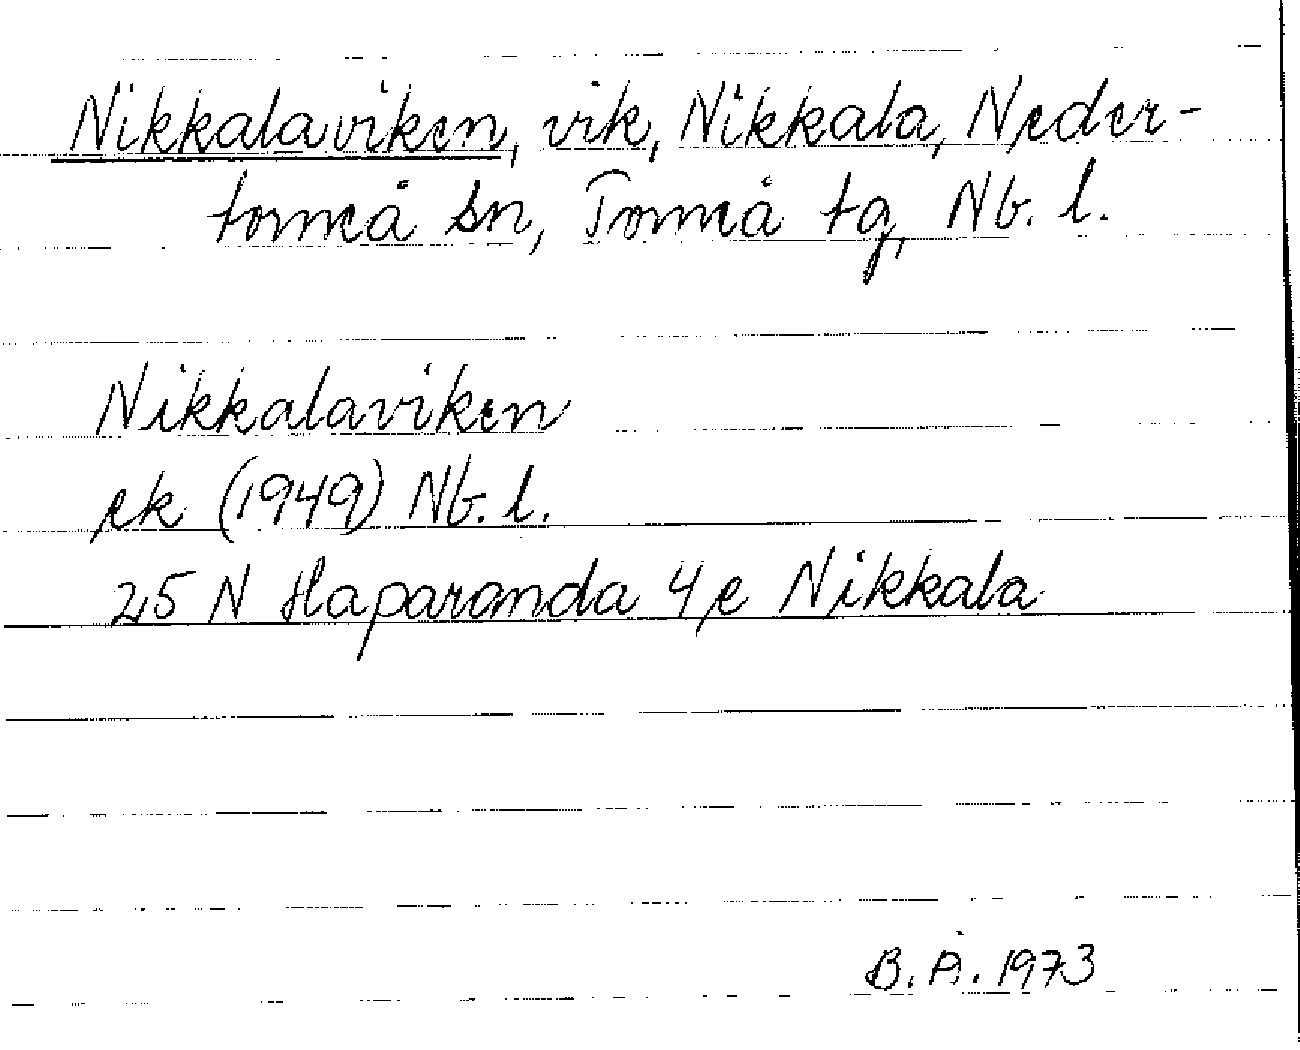 Nikkalaviken, vik, Nikkala, Neder-
torneå sn, Torneå tg, Nb. l.
Nikkalaviken
ek (1949) Nb. l.
25 N Haparanda 4 e Nikkala
B. Å. 1973